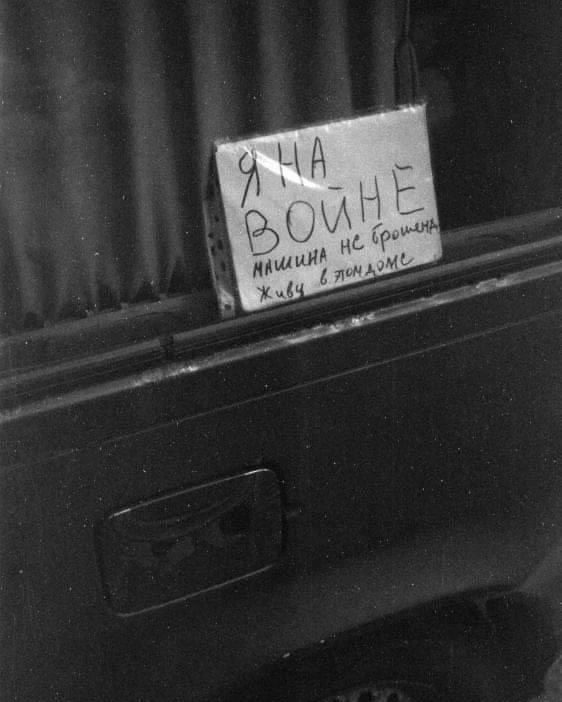 Я НА
ВОЙНЕ
МАШИНА НЕ брошена
Живу в этом доме